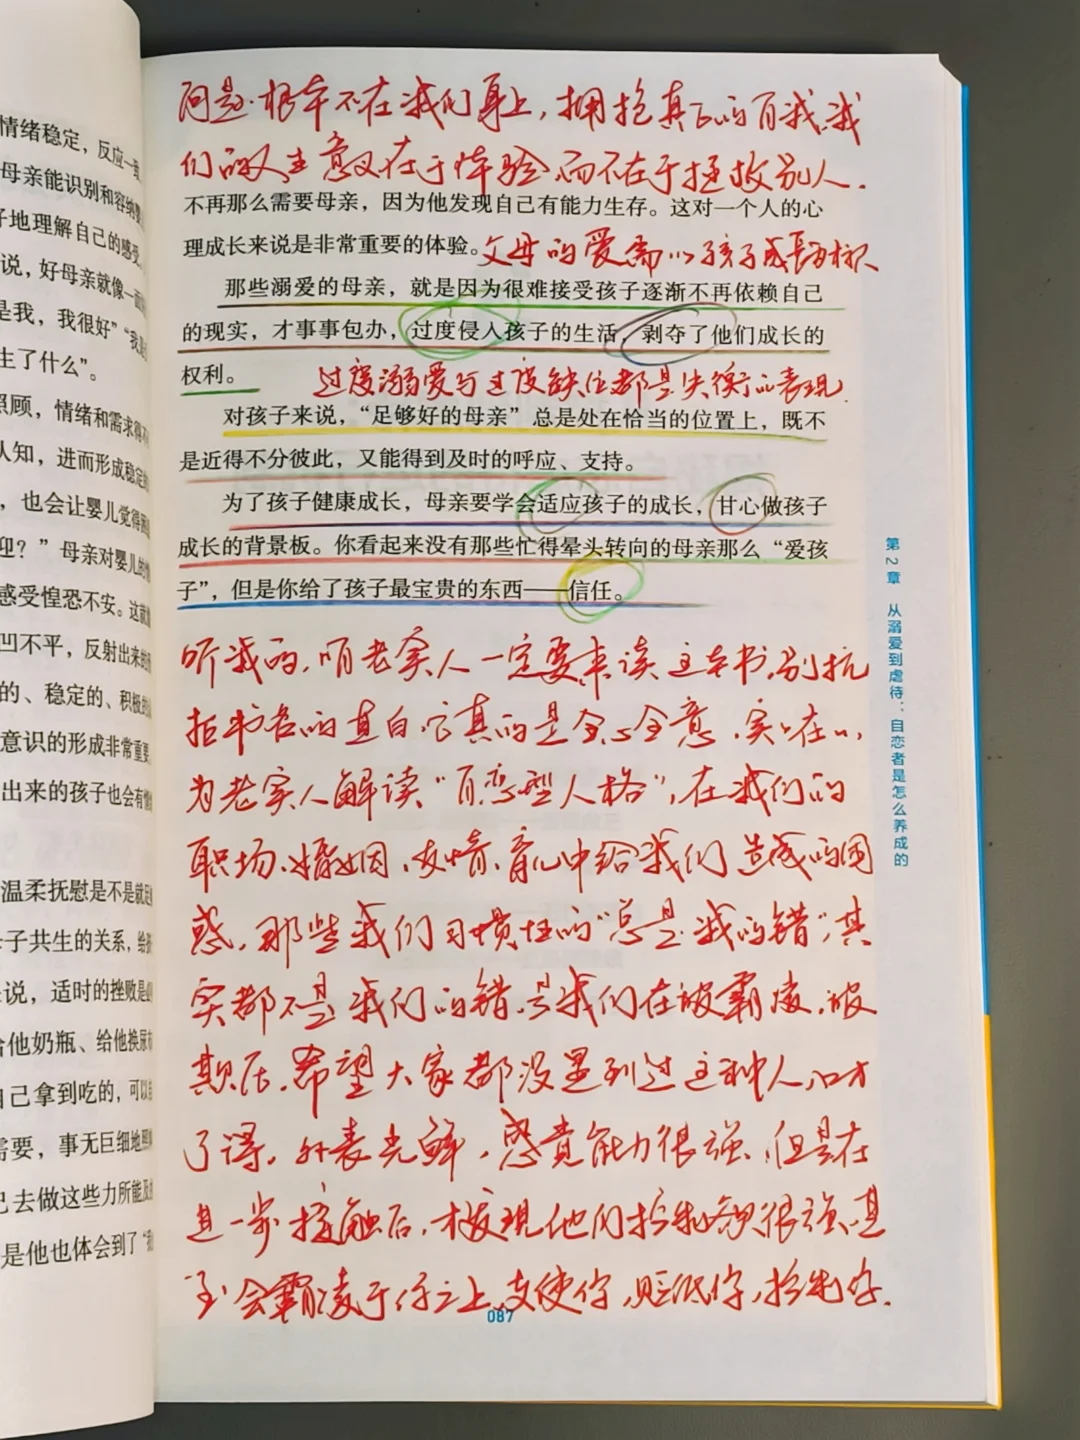 情绪稳定，反应一致
母亲能识别和容纳
好地理解自己的感受
说，好母亲就像一面
是我，我很好”“我
生了什么”。
照顾，情绪和需求得
认知，进而形成稳定
，也会让婴儿觉得
迎？”母亲对婴儿的
感受惶恐不安。这
凹不平，反射出来的
的、稳定的、积极的
意识的形成非常重要
出来的孩子也会有
温柔抚慰是不是就
母子共生的关系，给
说，适时的挫败是
给他奶瓶、给他换尿
自己拿到吃的，可以
需要，事无巨细地
己去做这些力所能及
是他也体会到了“
问题根本不在我们身上，拥抱真正的自我，我
们的人生意义在于体验，而不在于拯救别人.
不再那么需要母亲，因为他发现自己有能力生存。这对一个人的心
理成长来说是非常重要的体验。父母的爱需以孩子成長为标
那些溺爱的母亲，就是因为很难接受孩子逐渐不再依赖自己
的现实，才事事包办，过度侵入孩子的生活，剥夺了他们成长的
权利。 过度溺爱与过度缺位都是失衡的表現.
对孩子来说，“足够好的母亲”总是处在恰当的位置上，既不
是近得不分彼此，又能得到及时的呼应、支持。
为了孩子健康成长，母亲要学会适应孩子的成长，甘心做孩子
成长的背景板。你看起来没有那些忙得晕头转向的母亲那么“爱孩
子”，但是你给了孩子最宝贵的东西——信任。
听我的，咱老实人一定要来读这本书，别抗
拒书名的直白，它真的是全心全意，实实在在，
为老实人解读“自恋型人格”，在我们的
职场、婚姻、友情、育儿中给我们造成的困
惑，那些我们习惯性的“总是我的错”，其
实都不是我们的错，是我们在被霸凌，被
欺压，希望大家都没遇到过这种人，口才
了得，外表光鲜，感覚能力很强，但是在
进一步接触后，才发現他们控制欲很强，甚
至会霸凌于你之上，支使你，贬低你，控制你.
087
第2章 从溺爱到虐待：自恋者是怎么养成的